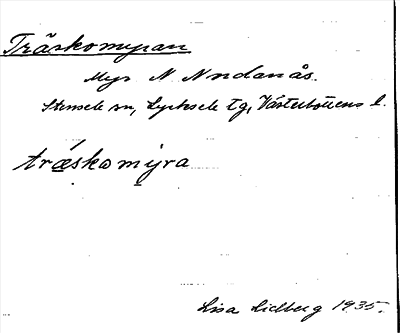 Träskomyran
Myr N Nordanås.
Stensele sn, Lycksele tg, Västerbottens l.
träskomy̱ra
Lisa Lidberg 1935.